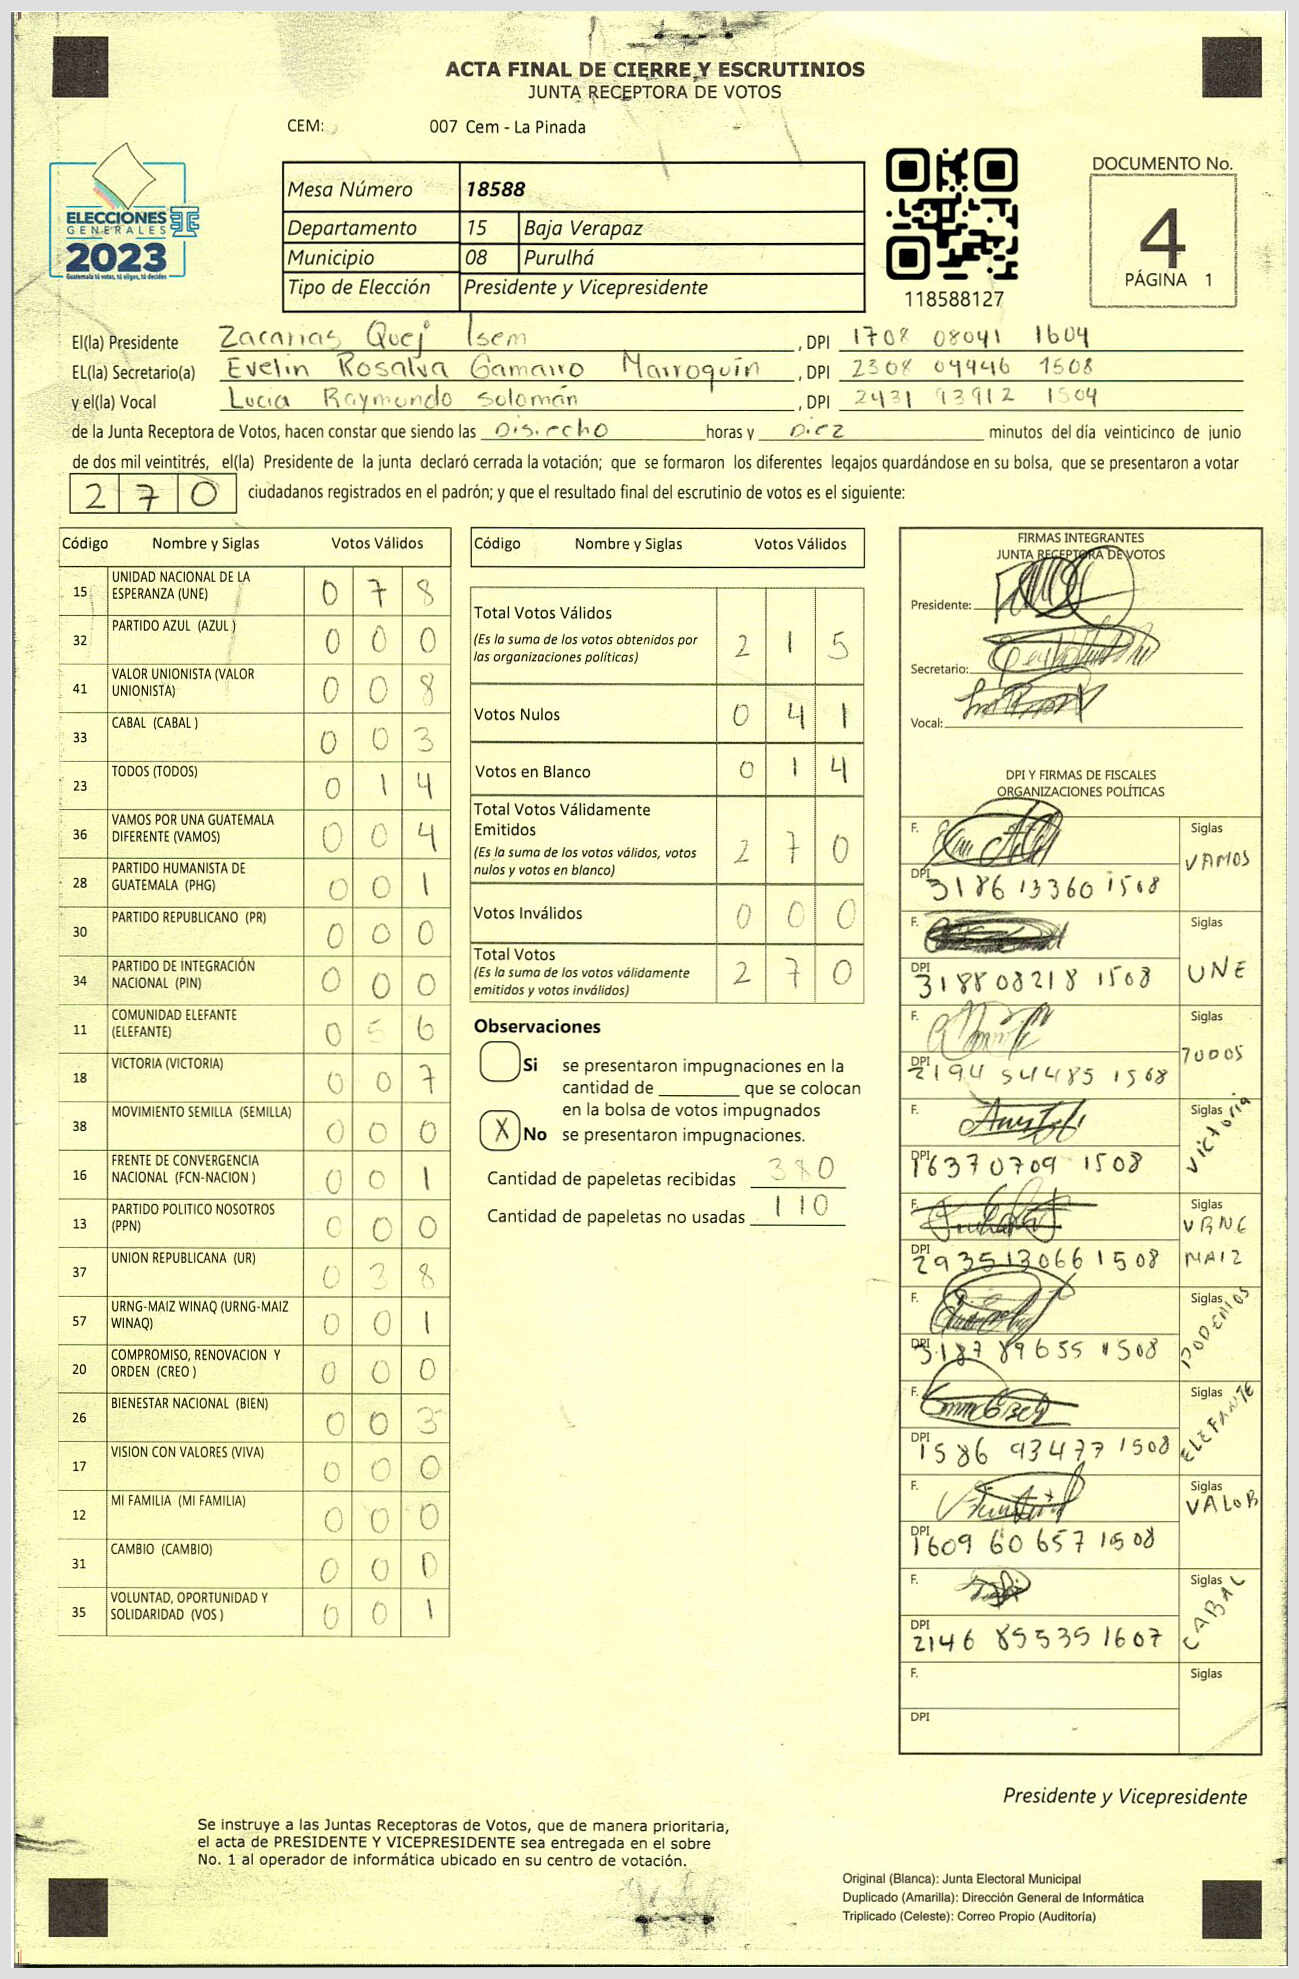 ACTA FINAL DE CIERRE Y ESCRUTINIOS
JUNTA RECEPTORA DE VOTOS
CEM: 007 Cem - La Pinada
ELECCIONES
GENERALES
2023
Guatemala tú votas, tú eliges, tú decides
Mesa Número 18588
Departamento 15 Baja Verapaz
Municipio 08 Purulhá
Tipo de Elección Presidente y Vicepresidente
118588127
DOCUMENTO No.
4
PÁGINA 1
El(la) Presidente Zacarias Quej Isem , DPI 1708 08041 1604
EL(la) Secretario(a) Evelin Rosalva Gamarro Marroquín , DPI 2308 04446 1508
y el(la) Vocal Lucia Raymundo Solomán , DPI 2431 93912 1504
de la Junta Receptora de Votos, hacen constar que siendo las Disiecho horas y Diez minutos del día veinticinco de junio
de dos mil veintitrés, el(la) Presidente de la junta declaró cerrada la votación; que se formaron los diferentes legajos guardándose en su bolsa, que se presentaron a votar
270 ciudadanos registrados en el padrón; y que el resultado final del escrutinio de votos es el siguiente:
Código Nombre y Siglas Votos Válidos
15 UNIDAD NACIONAL DE LA ESPERANZA (UNE) 0 7 8
32 PARTIDO AZUL (AZUL ) 0 0 0
41 VALOR UNIONISTA (VALOR UNIONISTA) 0 0 8
33 CABAL (CABAL ) 0 0 3
23 TODOS (TODOS) 0 1 4
36 VAMOS POR UNA GUATEMALA DIFERENTE (VAMOS) 0 0 4
28 PARTIDO HUMANISTA DE GUATEMALA (PHG) 0 0 1
30 PARTIDO REPUBLICANO (PR) 0 0 0
34 PARTIDO DE INTEGRACIÓN NACIONAL (PIN) 0 0 0
11 COMUNIDAD ELEFANTE (ELEFANTE) 0 5 6
18 VICTORIA (VICTORIA) 0 0 7
38 MOVIMIENTO SEMILLA (SEMILLA) 0 0 0
16 FRENTE DE CONVERGENCIA NACIONAL (FCN-NACION ) 0 0 1
13 PARTIDO POLITICO NOSOTROS (PPN) 0 0 0
37 UNION REPUBLICANA (UR) 0 3 8
57 URNG-MAIZ WINAQ (URNG-MAIZ WINAQ) 0 0 1
20 COMPROMISO, RENOVACION Y ORDEN (CREO ) 0 0 0
26 BIENESTAR NACIONAL (BIEN) 0 0 3
17 VISION CON VALORES (VIVA) 0 0 0
12 MI FAMILIA (MI FAMILIA) 0 0 0
31 CAMBIO (CAMBIO) 0 0 0
35 VOLUNTAD, OPORTUNIDAD Y SOLIDARIDAD (VOS ) 0 0 1
Código Nombre y Siglas Votos Válidos
Total Votos Válidos 2 1 5
(Es la suma de los votos obtenidos por
las organizaciones políticas)
Votos Nulos 0 4 1
Votos en Blanco 0 1 4
Total Votos Válidamente
Emitidos 2 7 0
(Es la suma de los votos válidos, votos
nulos y votos en blanco)
Votos Inválidos 0 0 0
Total Votos 2 7 0
(Es la suma de los votos válidamente
emitidos y votos inválidos)
Observaciones
Si se presentaron impugnaciones en la
cantidad de ________ que se colocan
en la bolsa de votos impugnados
X No se presentaron impugnaciones.
Cantidad de papeletas recibidas 380
Cantidad de papeletas no usadas 110
FIRMAS INTEGRANTES
JUNTA RECEPTORA DE VOTOS
Presidente:
Secretario:
Vocal:
DPI Y FIRMAS DE FISCALES
ORGANIZACIONES POLÍTICAS
F. Siglas VAMOS
DPI 3186 13360 1508
F. Siglas UNE
DPI 3188 08218 1508
F. Siglas TODOS
DPI 2194 54485 1508
F. Siglas Victoria
DPI 1637 0709 1508
F. Siglas URNG MAIZ
DPI 2935 13066 1508
F. Siglas PODEMOS
DPI 3187 89655 1508
F. Siglas ELEFANTE
DPI 1586 93477 1508
F. Siglas VALOR
DPI 1609 60657 1508
F. Siglas CABAL
DPI 2146 85535 1607
F. Siglas
DPI
Presidente y Vicepresidente
Se instruye a las Juntas Receptoras de Votos, que de manera prioritaria,
el acta de PRESIDENTE Y VICEPRESIDENTE sea entregada en el sobre
No. 1 al operador de informática ubicado en su centro de votación.
Original (Blanca): Junta Electoral Municipal
Duplicado (Amarilla): Dirección General de Informática
Triplicado (Celeste): Correo Propio (Auditoría)